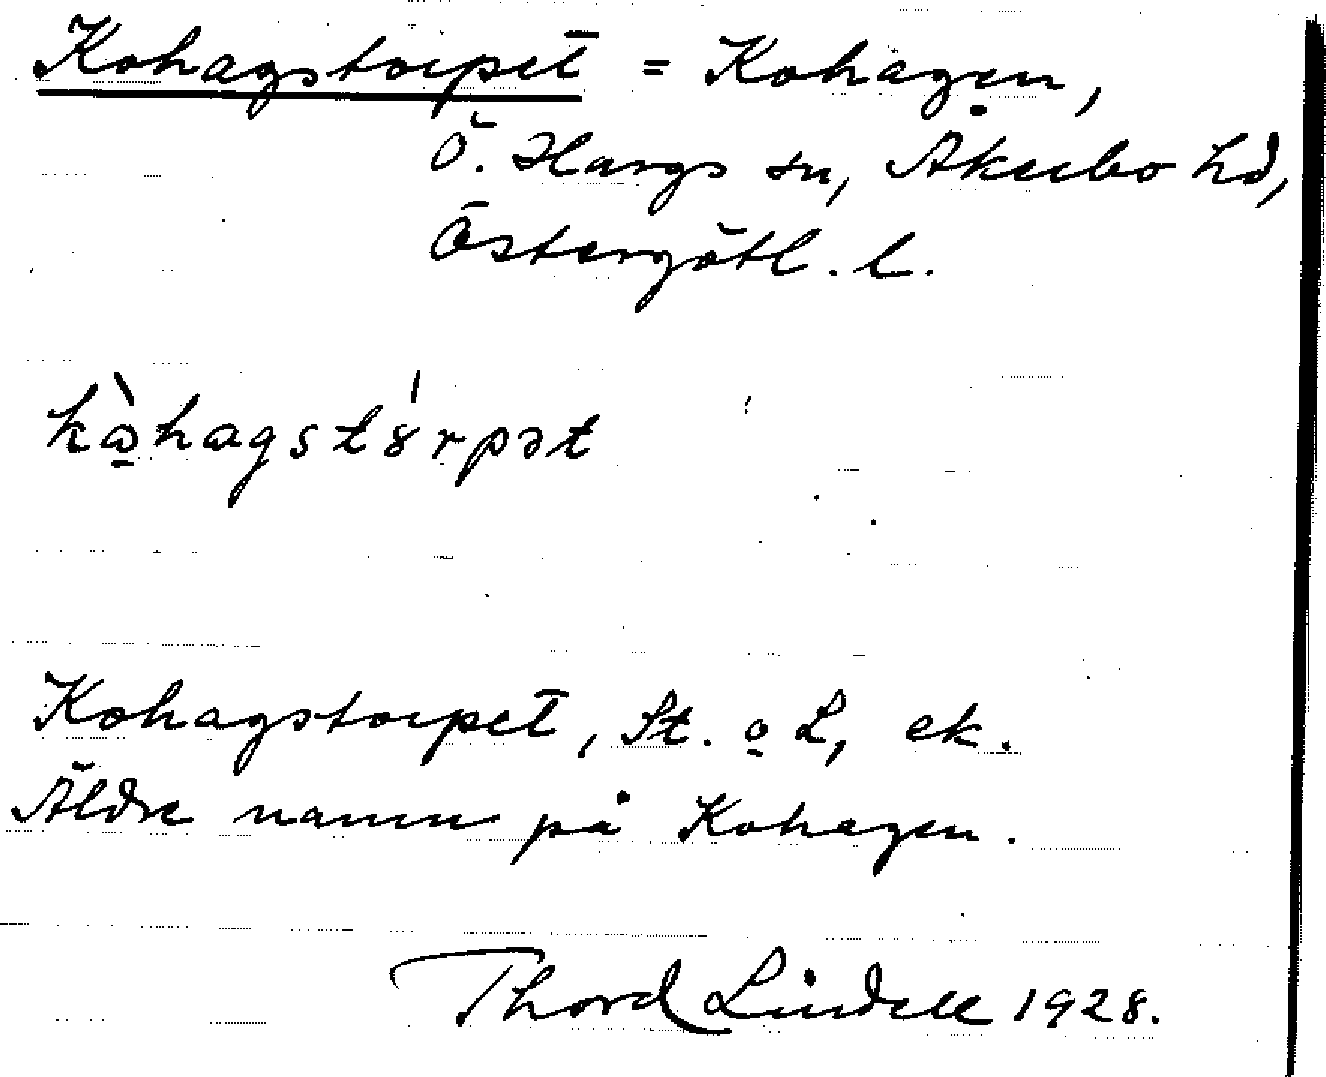 Kohagstorpet = Kohagen,
Ö. Hargs sn, Åkerbo hd,
Östergötl. l.
kὼhagstó̤rpət
Kohagstorpet, St. o L, ek.
Äldre namn på Kohagen.
Thord Lindell 1928.